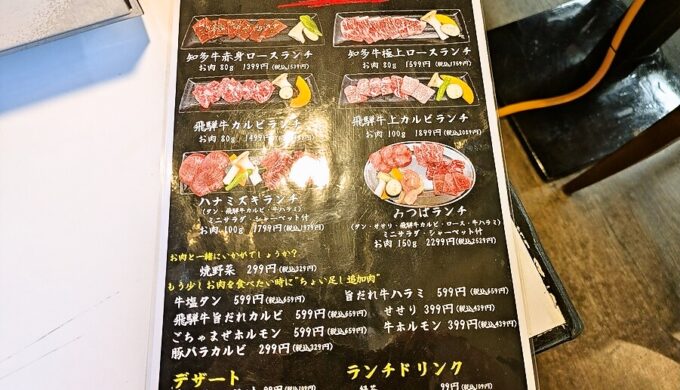 知多牛赤身ロースランチ
お肉 80g 1399円(税込1539円)
知多牛極上ロースランチ
お肉 80g 1599円(税込1759円)
飛騨牛カルビランチ
お肉 80g 1499円
飛騨牛上カルビランチ
お肉 100g 1899円(税込2089円)
ハナミズキランチ
(タン・飛騨牛カルビ・牛ハラミ)
ミニサラダ・シャーベット付
お肉 100g 1799円(税込1979円)
みつばランチ
(タン・ササリ・飛騨牛カルビ・ロース・牛ハラミ)
ミニサラダ・シャーベット付
お肉 150g 2299円(税込2529円)
お肉と一緒にいかがでしょうか?
焼野菜 299円(税込329円)
もう少しお肉を食べたい時に"ちょい足し追加肉"
牛塩タン 599円(税込659円)
旨だれ牛ハラミ 599円(税込659円)
飛騨牛旨だれカルビ 599円(税込659円)
せせり 399円(税込439円)
ごちゃまぜホルモン 599円(税込659円)
牛ホルモン 399円(税込439円)
豚バラカルビ 299円(税込329円)
デザート
ランチドリンク
99円